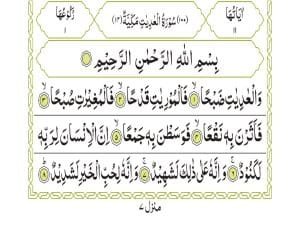 اٰیَاتُهَا ١١
(١٠٠) سُوْرَةُ الْعٰدِیٰتِ مَكِّیَّةٌ (١٤)
رُكُوْعُهَا ١
بِسْمِ اللّٰهِ الرَّحْمٰنِ الرَّحِیْمِ
وَالْعٰدِیٰتِ ضَبْحًا ۙ﴿١﴾ فَالْمُوْرِیٰتِ قَدْحًا ۙ﴿٢﴾ فَالْمُغِیْرٰتِ صُبْحًا ۙ﴿٣﴾
فَاَثَرْنَ بِهٖ نَقْعًا ۙ﴿٤﴾ فَوَسَطْنَ بِهٖ جَمْعًا ۙ﴿٥﴾ اِنَّ الْاِنْسَانَ لِرَبِّهٖ
لَكَنُوْدٌ ۚ﴿٦﴾ وَاِنَّهٗ عَلٰی ذٰلِكَ لَشَهِیْدٌ ۚ﴿٧﴾ وَاِنَّهٗ لِحُبِّ الْخَیْرِ لَشَدِیْدٌ ؕ﴿٨﴾
منزل ٧